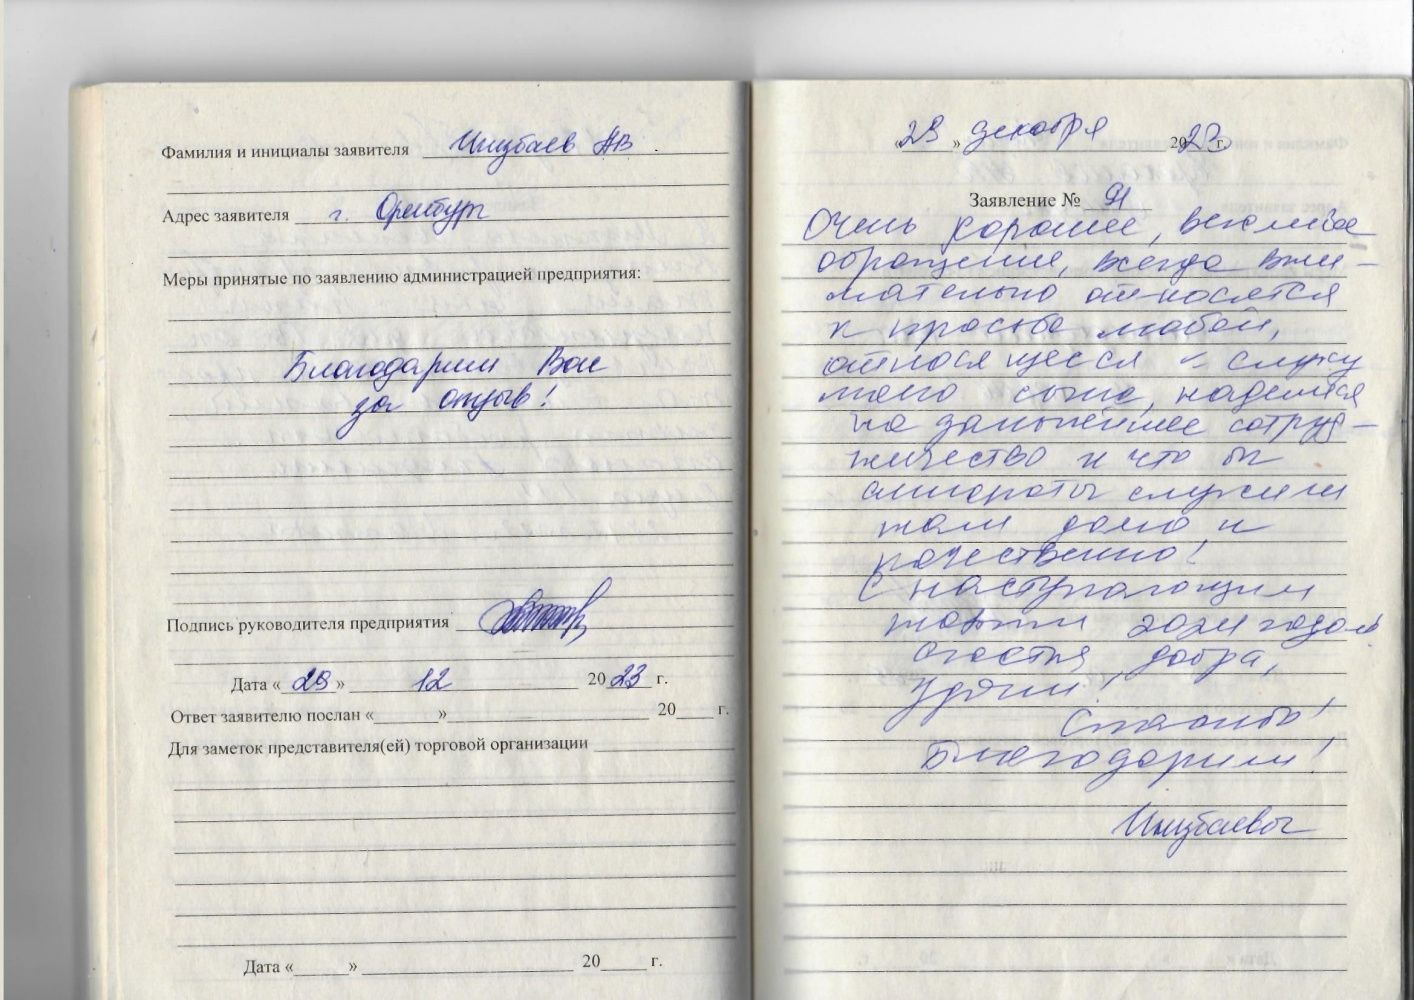 Фамилия и инициалы заявителя
Адрес заявителя г. Оренбург
Меры принятые по заявлению администрацией предприятия:
Благодарим Вас
за отзыв!
Подпись руководителя предприятия
Дата «29» 12 2023 г.
Ответ заявителю послан «» 20 г.
Для заметок представителя(ей) торговой организации
Дата «» 20 г.
«29» декабря 2023 г.
Заявление № 91
Очень хорошее, вежливое
обращение, всегда вни-
мательно относятся
к просьбе любой,
относящееся слуху
моего сына, надеемся
на дальнейшее сотруд-
ничество и что бы
аппараты служили
нам долго и
качественно!
С наступающим
новым 2024 годом!
счастья, добра,
удачи!
Спасибо!
Благодарим!